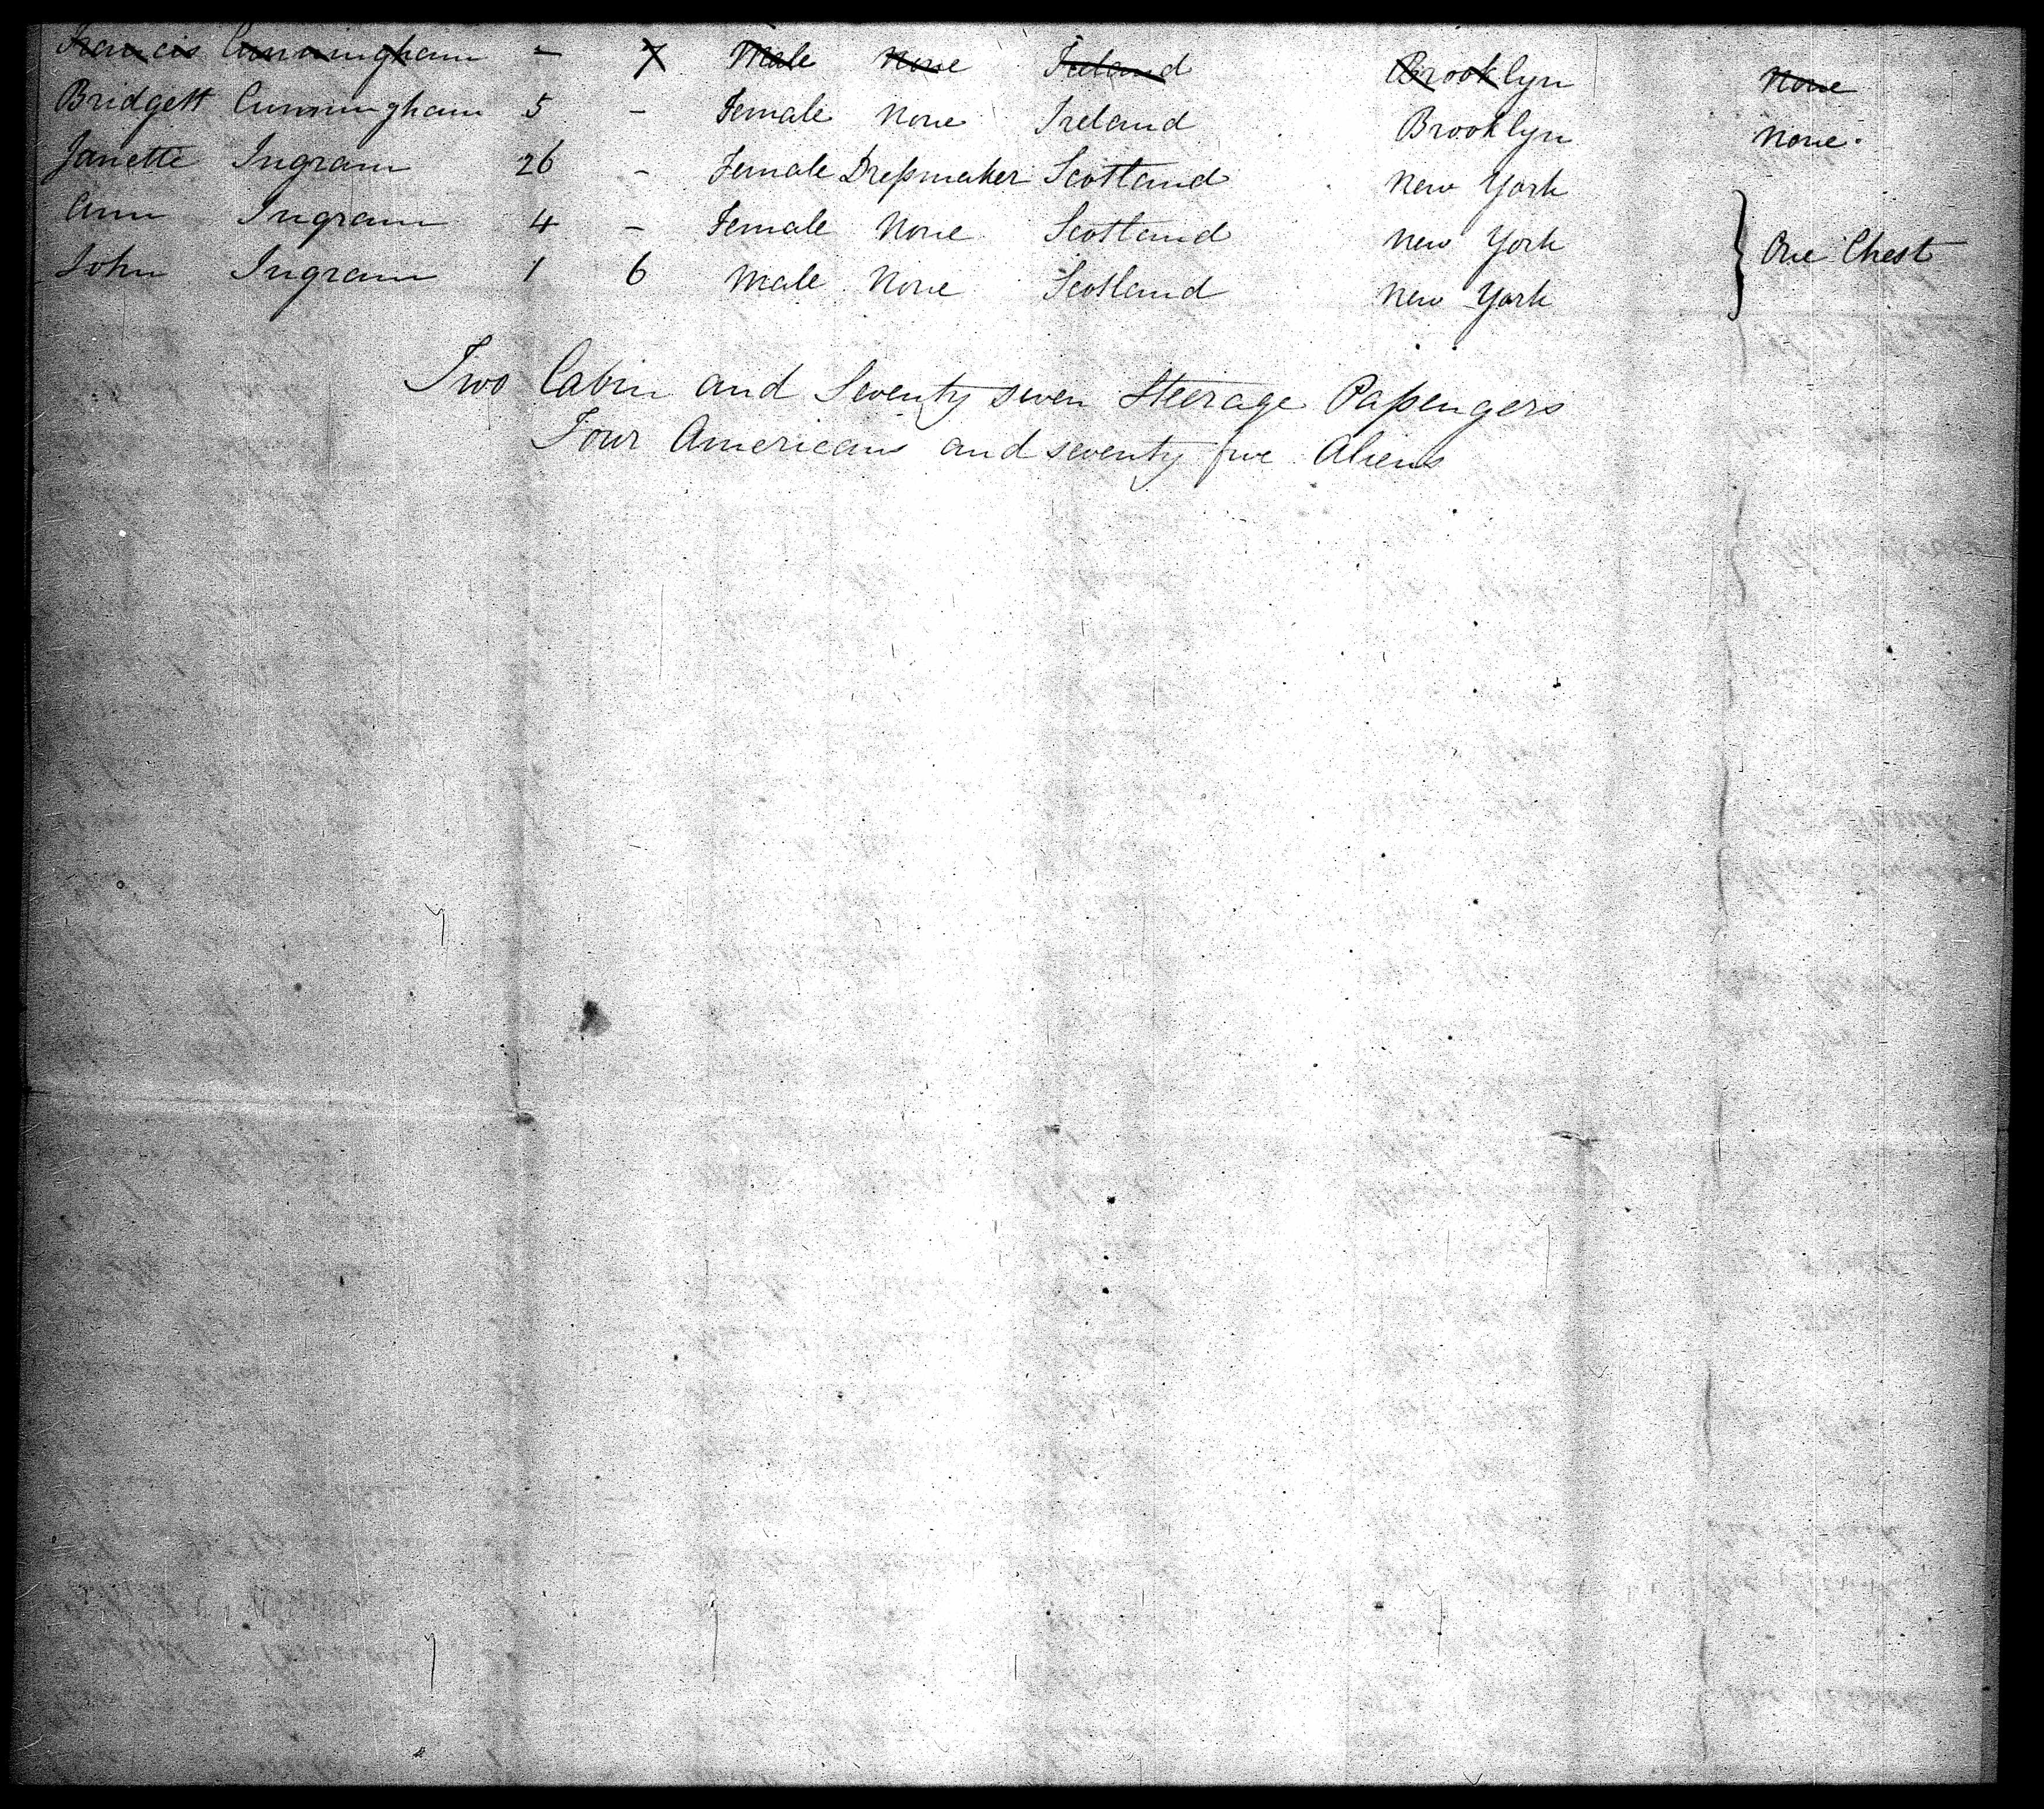 Francis Cunningham - 7 Male None Ireland Brooklyn None
Bridgett Cunningham 5 - Female None Ireland Brooklyn None.
Janette Ingram 26 - Female Dressmaker Scotland New York
Ann Ingram 4 - Female None Scotland New York
John Ingram 1 6 Male None Scotland New York
} One Chest
Two Cabin and Seventy seven Steerage Passengers
Four Americans and seventy five Aliens